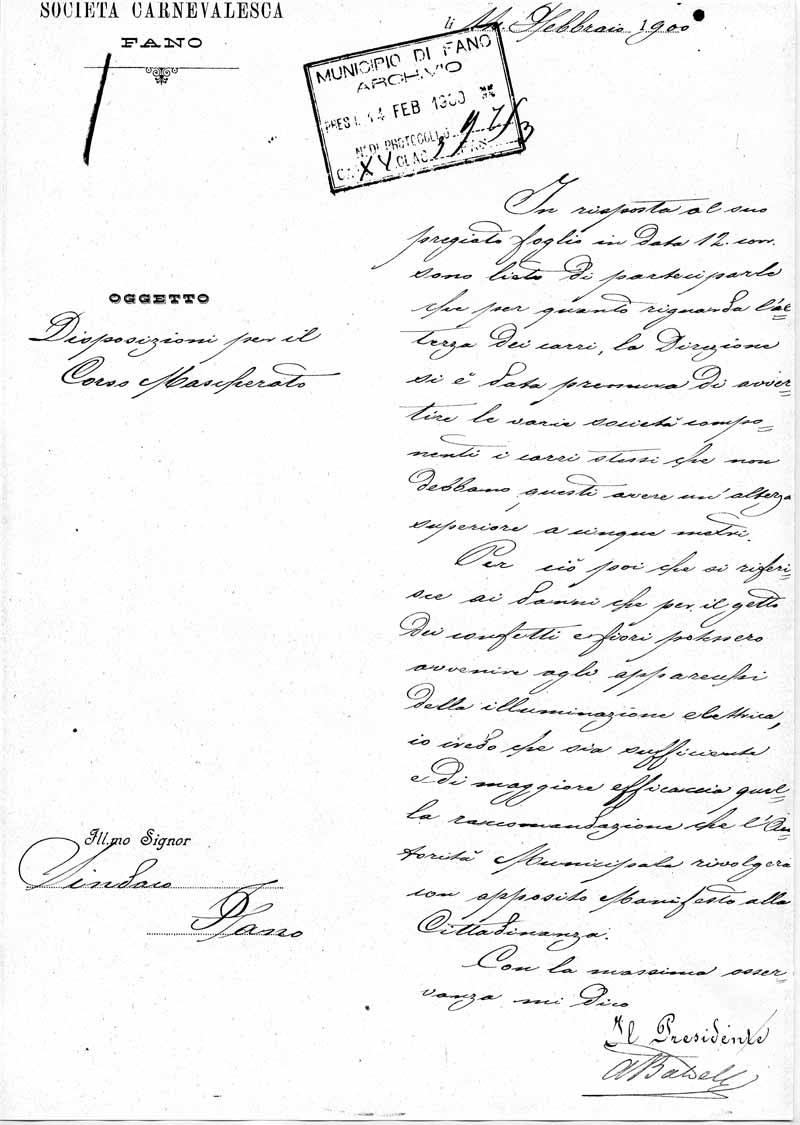 SOCIETÀ CARNEVALESCA
FANO
li 14 Febbraio 1900
MUNICIPIO DI FANO
ARCHIVIO
PRES. L. 14 FEB 1900
N° DI PROTOCOLLO
CAT. XV CLAS. 3 FAS.
OGGETTO
Disposizioni per il
Corso Mascherato
In risposta al suo
pregiato foglio in data 12. corr.
sono lieto di parteciparle
che per quanto riguarda l'al=
tezza dei carri, la Direzione
si è data premura di avver=
tire le varie società compo=
nenti i carri stessi che non
debbano questi avere un'altezza
superiore a cinque metri.
Per ciò poi che si riferi=
sce ai danni che per il getto
dei confetti e fiori potessero
avvenire agli apparecchi
della illuminazione elettrica,
io credo che sia sufficiente
e di maggiore efficaccia quel=
la raccomandazione che l'Au=
torità Municipale rivolgerà
con apposito Manifesto alla
Cittadinanza.
Con la massima osser=
vanza mi dico
Il Presidente
Ill.mo Signor
Sindaco
Fano